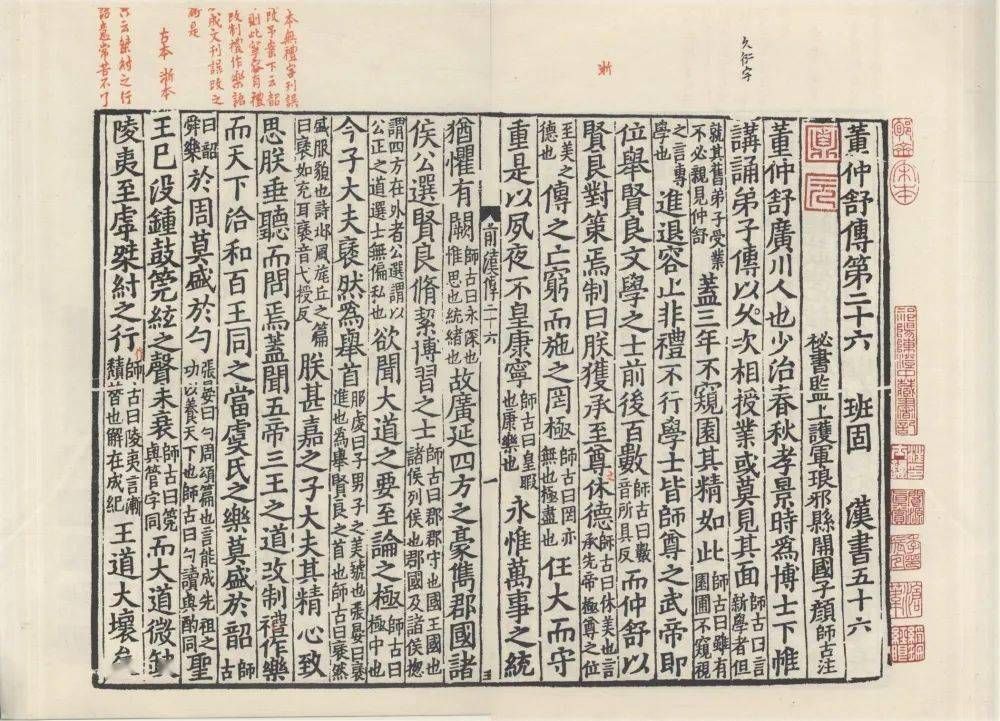 董仲舒傳第二十六 班固 漢書五十六
秘書監上護軍琅邪縣開國子顏師古注
董仲舒廣川人也少治春秋孝景時為博士下帷
講誦弟子傳以久次相授業或莫見其面師古曰言新學者但
就其舊弟子受業不必親見仲舒蓋三年不窺園其精如此師古曰雖有園圃不窺視
之言專學也進退容止非禮不行學士皆師尊之武帝即
位舉賢良文學之士前後百數師古曰數音所具反而仲舒以
賢良對策焉制曰朕獲承至尊休德師古曰休美也言承先帝極尊之位
至美之德也傳之亡窮而施之罔極師古曰罔亦無也極盡也任大而守
重是以夙夜不皇康寧師古曰皇暇也康樂也永惟萬事之統
前漢傳二十六 一
猶懼有闕師古曰永深也惟思也統緒也故廣延四方之豪儁郡國諸
侯公選賢良脩絜博習之士師古曰郡郡守也國王國也諸侯列侯也郡國及諸侯揔
謂四方在外者公選謂以公正之道選士無偏私也欲聞大道之要至論之極師古曰極中也
今子大夫裦然為舉首服虔曰子男子之美號也張晏曰裦進也為舉賢良之首也師古曰裦然
盛服貌也詩邶風旄丘之篇曰裦如充耳裦音弋授反朕甚嘉之子大夫其精心致
思朕垂聽而問焉蓋聞五帝三王之道改制禮作樂
而天下洽和百王同之當虞氏之樂莫盛於韶師古
曰韶舜樂於周莫盛於勺張晏曰勺周頌篇也言能成先祖之功以養天下也師古曰勺讀與酌同聖
王已沒鍾鼓筦絃之聲未衰師古曰筦與管字同而大道微缺
陵夷至虖桀紂之行師古曰陵夷言漸頹替也解在成紀王道大壞矣
浙
本無禮字刊誤
改予案下云韶
改制禮作樂語
成文刊誤改之
古本 浙本
只云桀紂之行
語意常苦不了